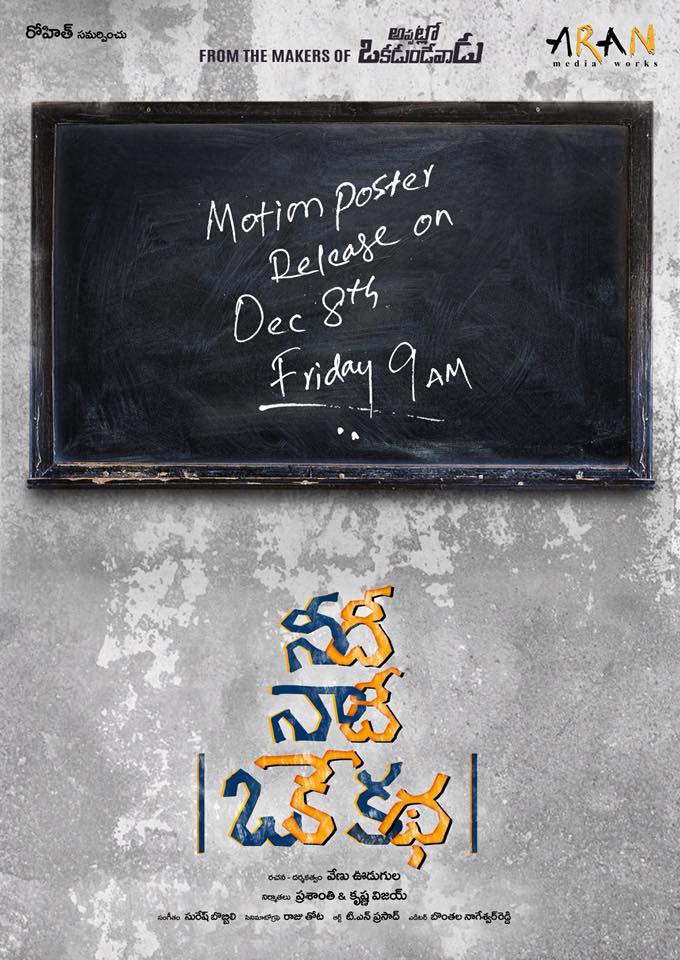 రోహిత్ సమర్పించు
FROM THE MAKERS OF అప్పట్లో ఒకడుండేవాడు
ARAN
media works
Motion Poster
Release on
Dec 8th
Friday 9 AM
నీది
నాది
ఒకే కథ
రచన - దర్శకత్వం వేణు ఊడుగుల
నిర్మాతలు ప్రశాంతి & కృష్ణ విజయ్
సంగీతం సురేష్ బొబ్బిలి సినిమాటోగ్రఫి రాజు తోట ఆర్ట్ టి.ఎన్ ప్రసాద్ ఎడిటర్ బొంతల నాగేశ్వర్ రెడ్డి